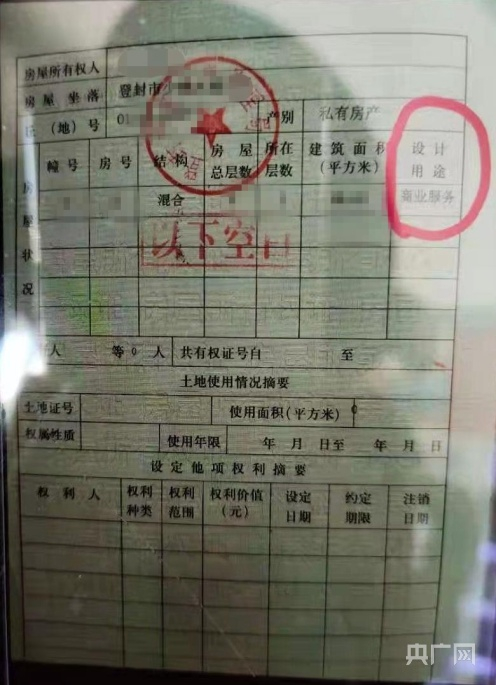 房屋所有权人
房屋坐落 登封市
(地)号 01 产别 私有房产
幢号 房号 结构 房屋总层数 所在层数 建筑面积(平方米) 设计用途
房屋状况
混合 商业服务
以下空白
人 等0人 共有权证号自 至
土地使用情况摘要
土地证号 使用面积(平方米) 0
权属性质 使用年限 年 月 日至 年 月 日
设定他项权利摘要
权利人 权利种类 权利范围 权利价值(元) 设定日期 约定期限 注销日期
央广网